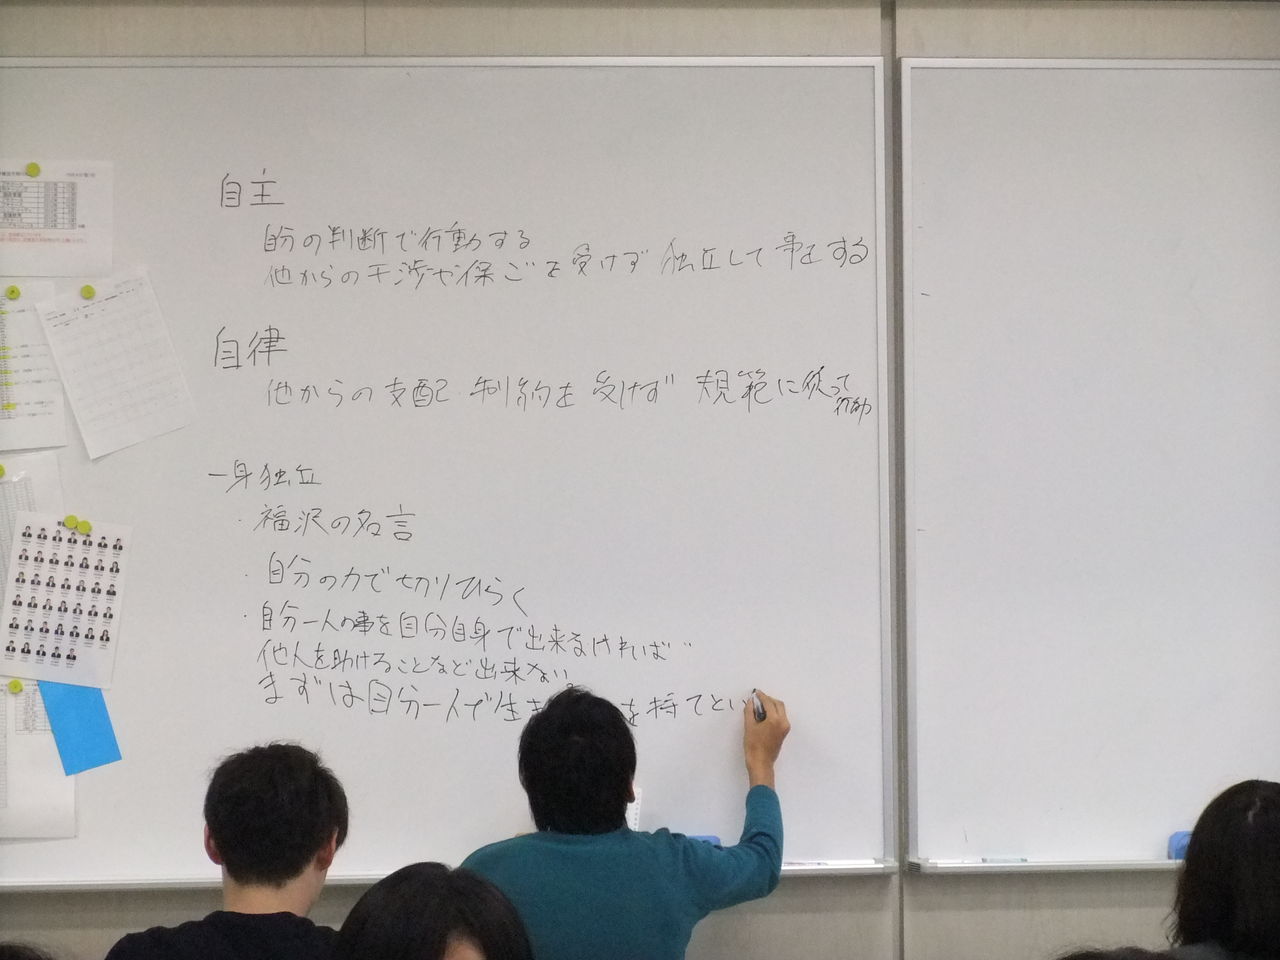 自主
自分の判断で行動する
他からの干渉や保ごを受けず 独立して事をする
自律
他からの支配・制約を受けず 規範に従って
行動
一身独立
・福沢の名言
・自分の力で切りひらく
・自分一人の事を自分自身で出来なければ
他人を助けることなど出来ない
まずは自分一人で生き を持てとい